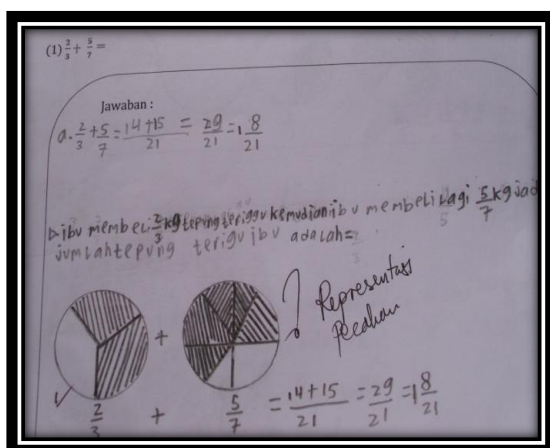 (1) 2/3 + 5/7 =
Jawaban :
a. 2/3 + 5/7 = 14+15/21 = 29/21 = 1 8/21
b ibu membeli 2/3 kg tepung teriggu kemudian ibu membeli lagi 5/7 kg jad
jumlah tepung terigu ibu adalah =
+
Representasi
pecahan
2/3 + 5/7 = 14+15/21 = 29/21 = 1 8/21